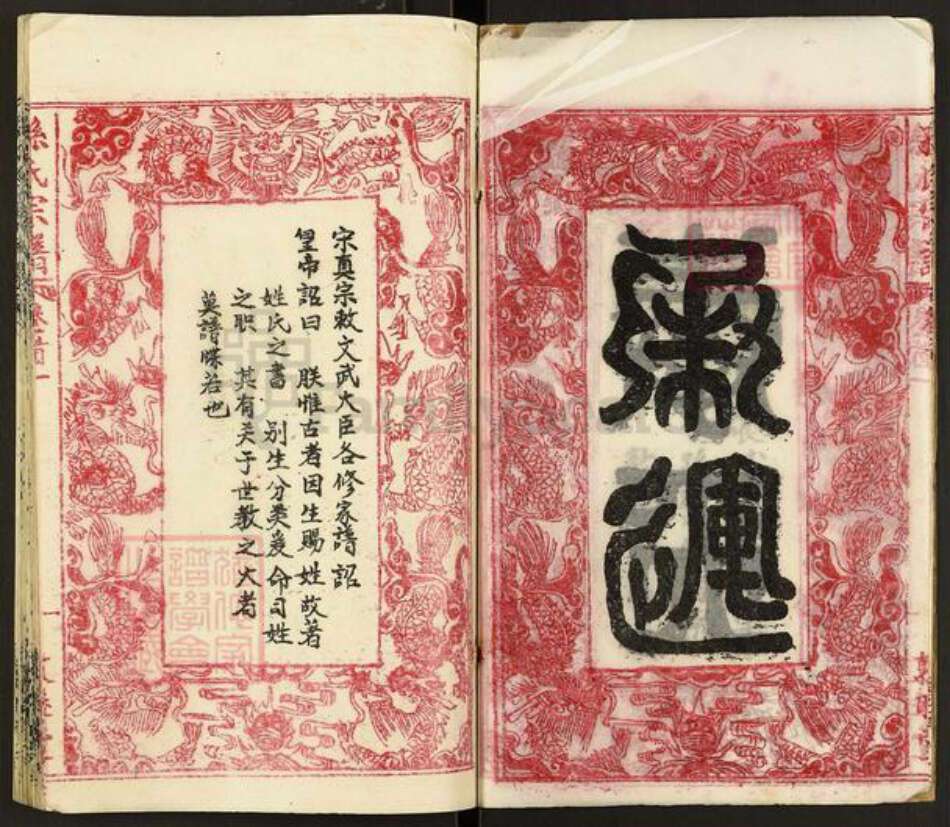 承運
宋真宗敕文武大臣各修家譜詔
皇帝詔曰 朕惟古者因生賜姓 故著
姓氏之書 别生分类爰命司姓
之职 其有关于世教之大者
莫譜牒若也
孫氏宗譜 卷首 一